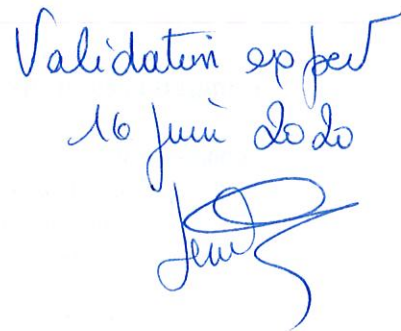 Validation expert
16 juin 2020